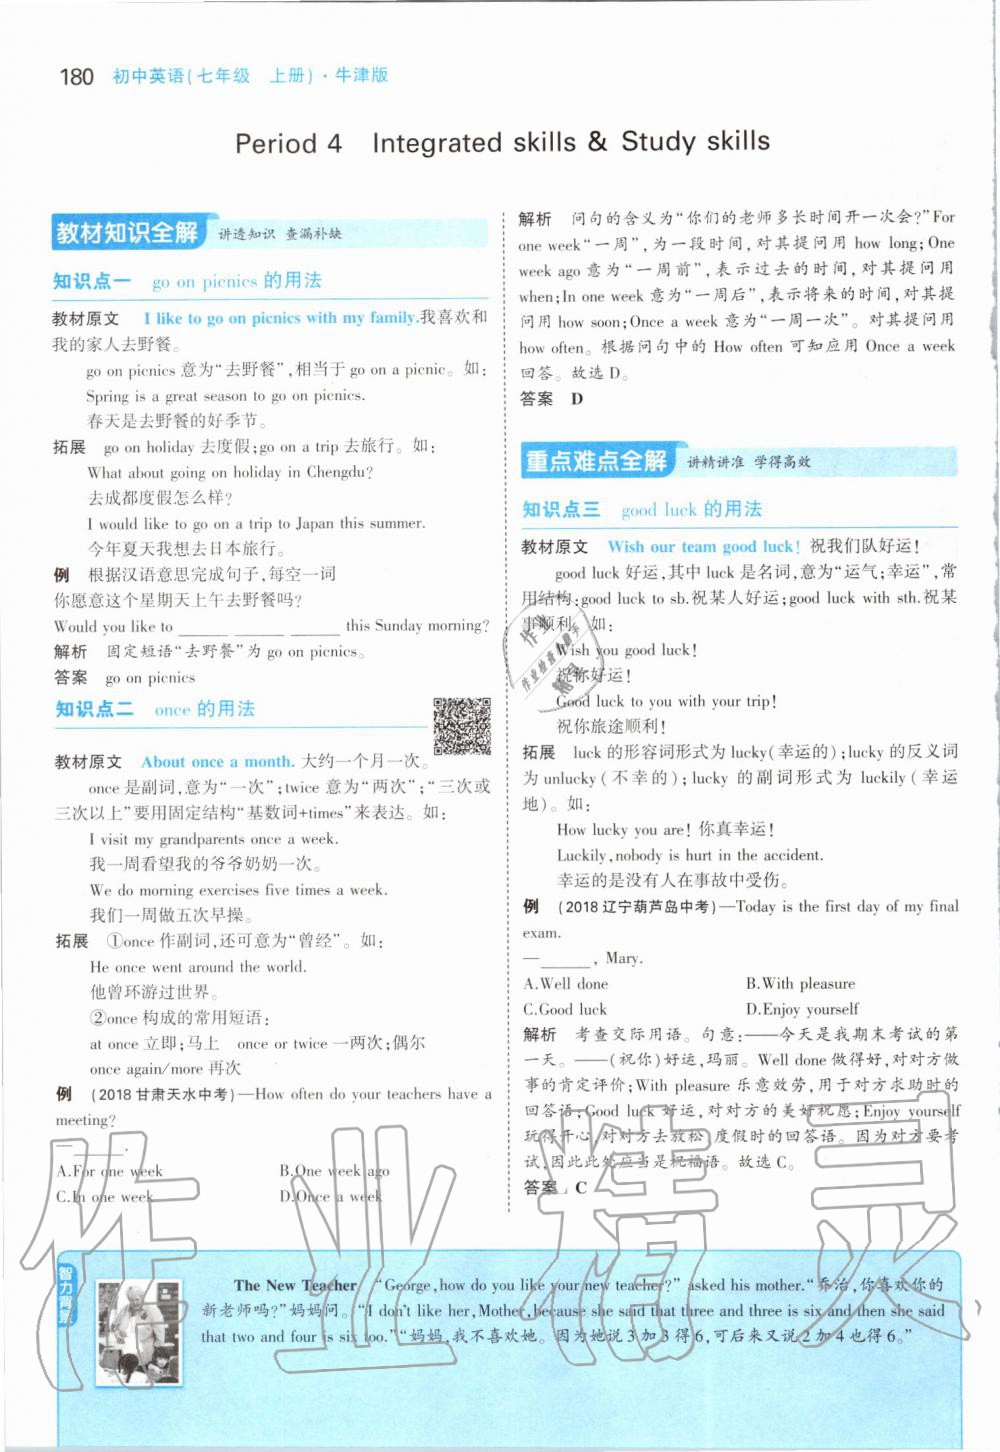 180 初中英语(七年级 上册)·牛津版
Period 4 Integrated skills & Study skills
教材知识全解 讲透知识 查漏补缺
知识点一 go on picnics 的用法
教材原文 I like to go on picnics with my family.我喜欢和
我的家人去野餐。
go on picnics 意为“去野餐”,相当于 go on a picnic。如:
Spring is a great season to go on picnics.
春天是去野餐的好季节。
拓展 go on holiday 去度假;go on a trip 去旅行。如:
What about going on holiday in Chengdu?
去成都度假怎么样?
I would like to go on a trip to Japan this summer.
今年夏天我想去日本旅行。
例 根据汉语意思完成句子,每空一词
你愿意这个星期天上午去野餐吗?
Would you like to ______ ______ ______ this Sunday morning?
解析 固定短语“去野餐”为 go on picnics。
答案 go on picnics
知识点二 once 的用法
教材原文 About once a month. 大约一个月一次。
once 是副词,意为“一次”;twice 意为“两次”;“三次或
三次以上”要用固定结构“基数词+times”来表达。如:
I visit my grandparents once a week.
我一周看望我的爷爷奶奶一次。
We do morning exercises five times a week.
我们一周做五次早操。
拓展 ①once 作副词,还可意为“曾经”。如:
He once went around the world.
他曾环游过世界。
②once 构成的常用短语:
at once 立即;马上 once or twice 一两次;偶尔
once again/more 再次
例 (2018 甘肃天水中考)—How often do your teachers have a
meeting?
—______.
A.For one week B.One week ago
C.In one week D.Once a week
解析 问句的含义为“你们的老师多长时间开一次会?”For
one week“一周”,为一段时间,对其提问用 how long;One
week ago 意为“一周前”,表示过去的时间,对其提问用
when;In one week 意为“一周后”,表示将来的时间,对其提
问用 how soon;Once a week 意为“一周一次”。对其提问用
how often。根据问句中的 How often 可知应用 Once a week
回答。故选 D。
答案 D
重点难点全解 讲精讲准 学得高效
知识点三 good luck 的用法
教材原文 Wish our team good luck! 祝我们队好运!
good luck 好运,其中 luck 是名词,意为“运气;幸运”,常
用结构:good luck to sb.祝某人好运;good luck with sth.祝某
事顺利。如:
Wish you good luck!
祝你好运!
Good luck to you with your trip!
祝你旅途顺利!
拓展 luck 的形容词形式为 lucky(幸运的);lucky 的反义词
为 unlucky(不幸的);lucky 的副词形式为 luckily(幸运
地)。如:
How lucky you are! 你真幸运!
Luckily,nobody is hurt in the accident.
幸运的是没有人在事故中受伤。
例 (2018 辽宁葫芦岛中考)—Today is the first day of my final
exam.
—______, Mary.
A.Well done B.With pleasure
C.Good luck D.Enjoy yourself
解析 考查交际用语。句意:——今天是我期末考试的第
一天。——(祝你)好运,玛丽。Well done 做得好,对对方做
事的肯定评价;With pleasure 乐意效劳,用于对方求助时的
回答语;Good luck 好运,对对方的美好祝愿;Enjoy yourself
玩得开心,对对方去放松、度假时的回答语。因为对方要考
试,因此此处应当是祝福语。故选 C。
答案 C
智力背景
The New Teacher “George,how do you like your new teacher?” asked his mother.“乔治,你喜欢你的
新老师吗?”妈妈问。“I don't like her,Mother,because she said that three and three is six and then she said
that two and four is six too.”“妈妈,我不喜欢她。因为她说 3 加 3 得 6,可后来又说 2 加 4 也得 6。”
作业精灵